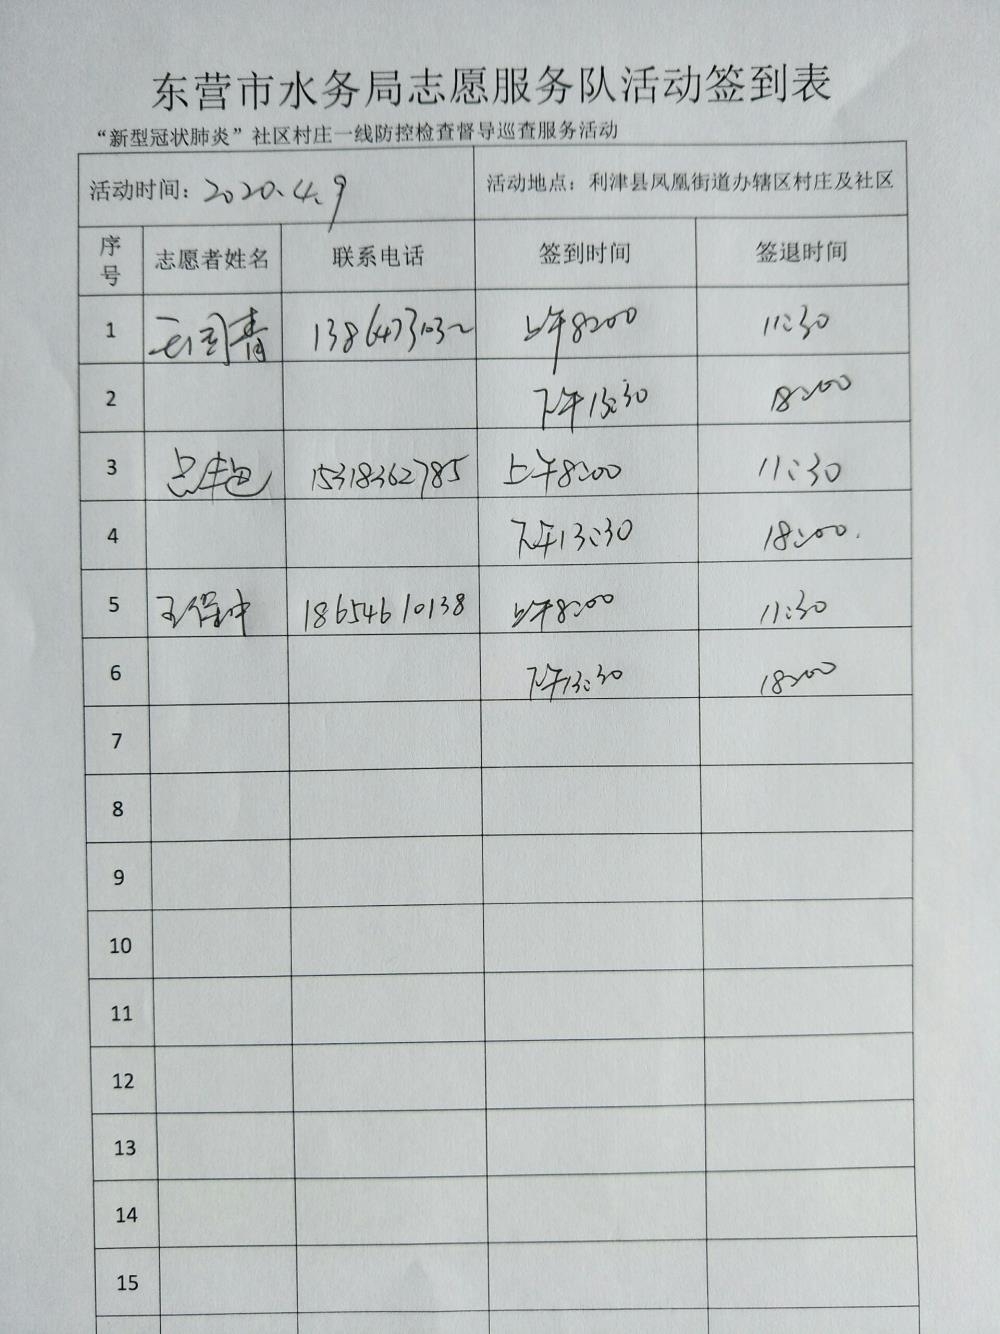 东营市水务局志愿服务队活动签到表
“新型冠状肺炎”社区村庄一线防控检查督导巡查服务活动
活动时间：2020.4.9 活动地点：利津县凤凰街道办辖区村庄及社区
序号 志愿者姓名 联系电话 签到时间 签退时间
1 国青 上午8:00 11:30
2 下午13:30 18:00
3 15318362785 上午8:00 11:30
4 下午13:30 18:00.
5 王保中 18654610138 上午8:00 11:30
6 下午13:30 18:00
7
8
9
10
11
12
13
14
15